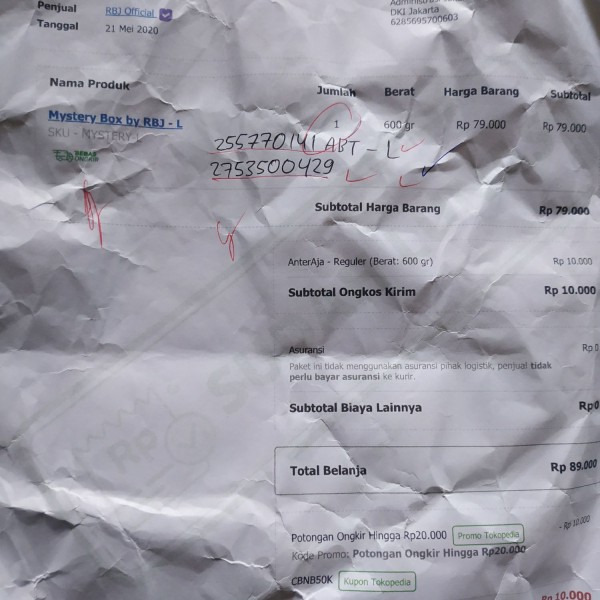 Penjual RBJ Official
DKI Jakarta
6285695700603
Tanggal 21 Mei 2020
Nama Produk Jumlah Berat Harga Barang Subtotal
Mystery Box by RBJ - L 1 600 gr Rp 79.000 Rp 79.000
SKU - MYSTERY-L
BEBAS ONGKIR
255770141 ABT - L
2753500429 L L
Subtotal Harga Barang Rp 79.000
AnterAja - Reguler (Berat: 600 gr) Rp 10.000
Subtotal Ongkos Kirim Rp 10.000
Asuransi Rp 0
Paket ini tidak menggunakan asuransi pihak logistik, penjual tidak
perlu bayar asuransi ke kurir.
Subtotal Biaya Lainnya Rp0
Total Belanja Rp 89.000
Potongan Ongkir Hingga Rp20.000 Promo Tokopedia - Rp 10.000
Kode Promo: Potongan Ongkir Hingga Rp20.000
CBNB50K Kupon Tokopedia
Rp 10.000